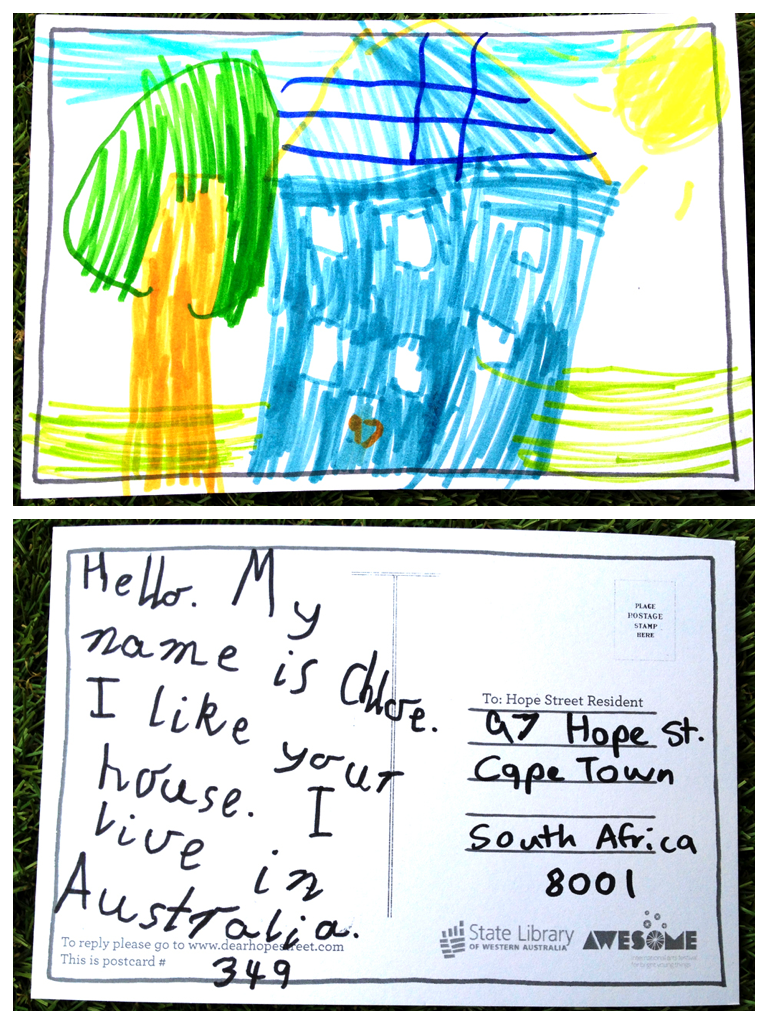 Hello. My
name is Chloe.
I like your
house. I
live in
Australia.
To reply please go to www.dearhopestreet.com
This is postcard #
349
PLACE
POSTAGE
STAMP
HERE
To: Hope Street Resident
97 Hope St.
Cape Town
South Africa
8001
State Library
OF WESTERN AUSTRALIA
AWESOME
international arts festival
for bright young things